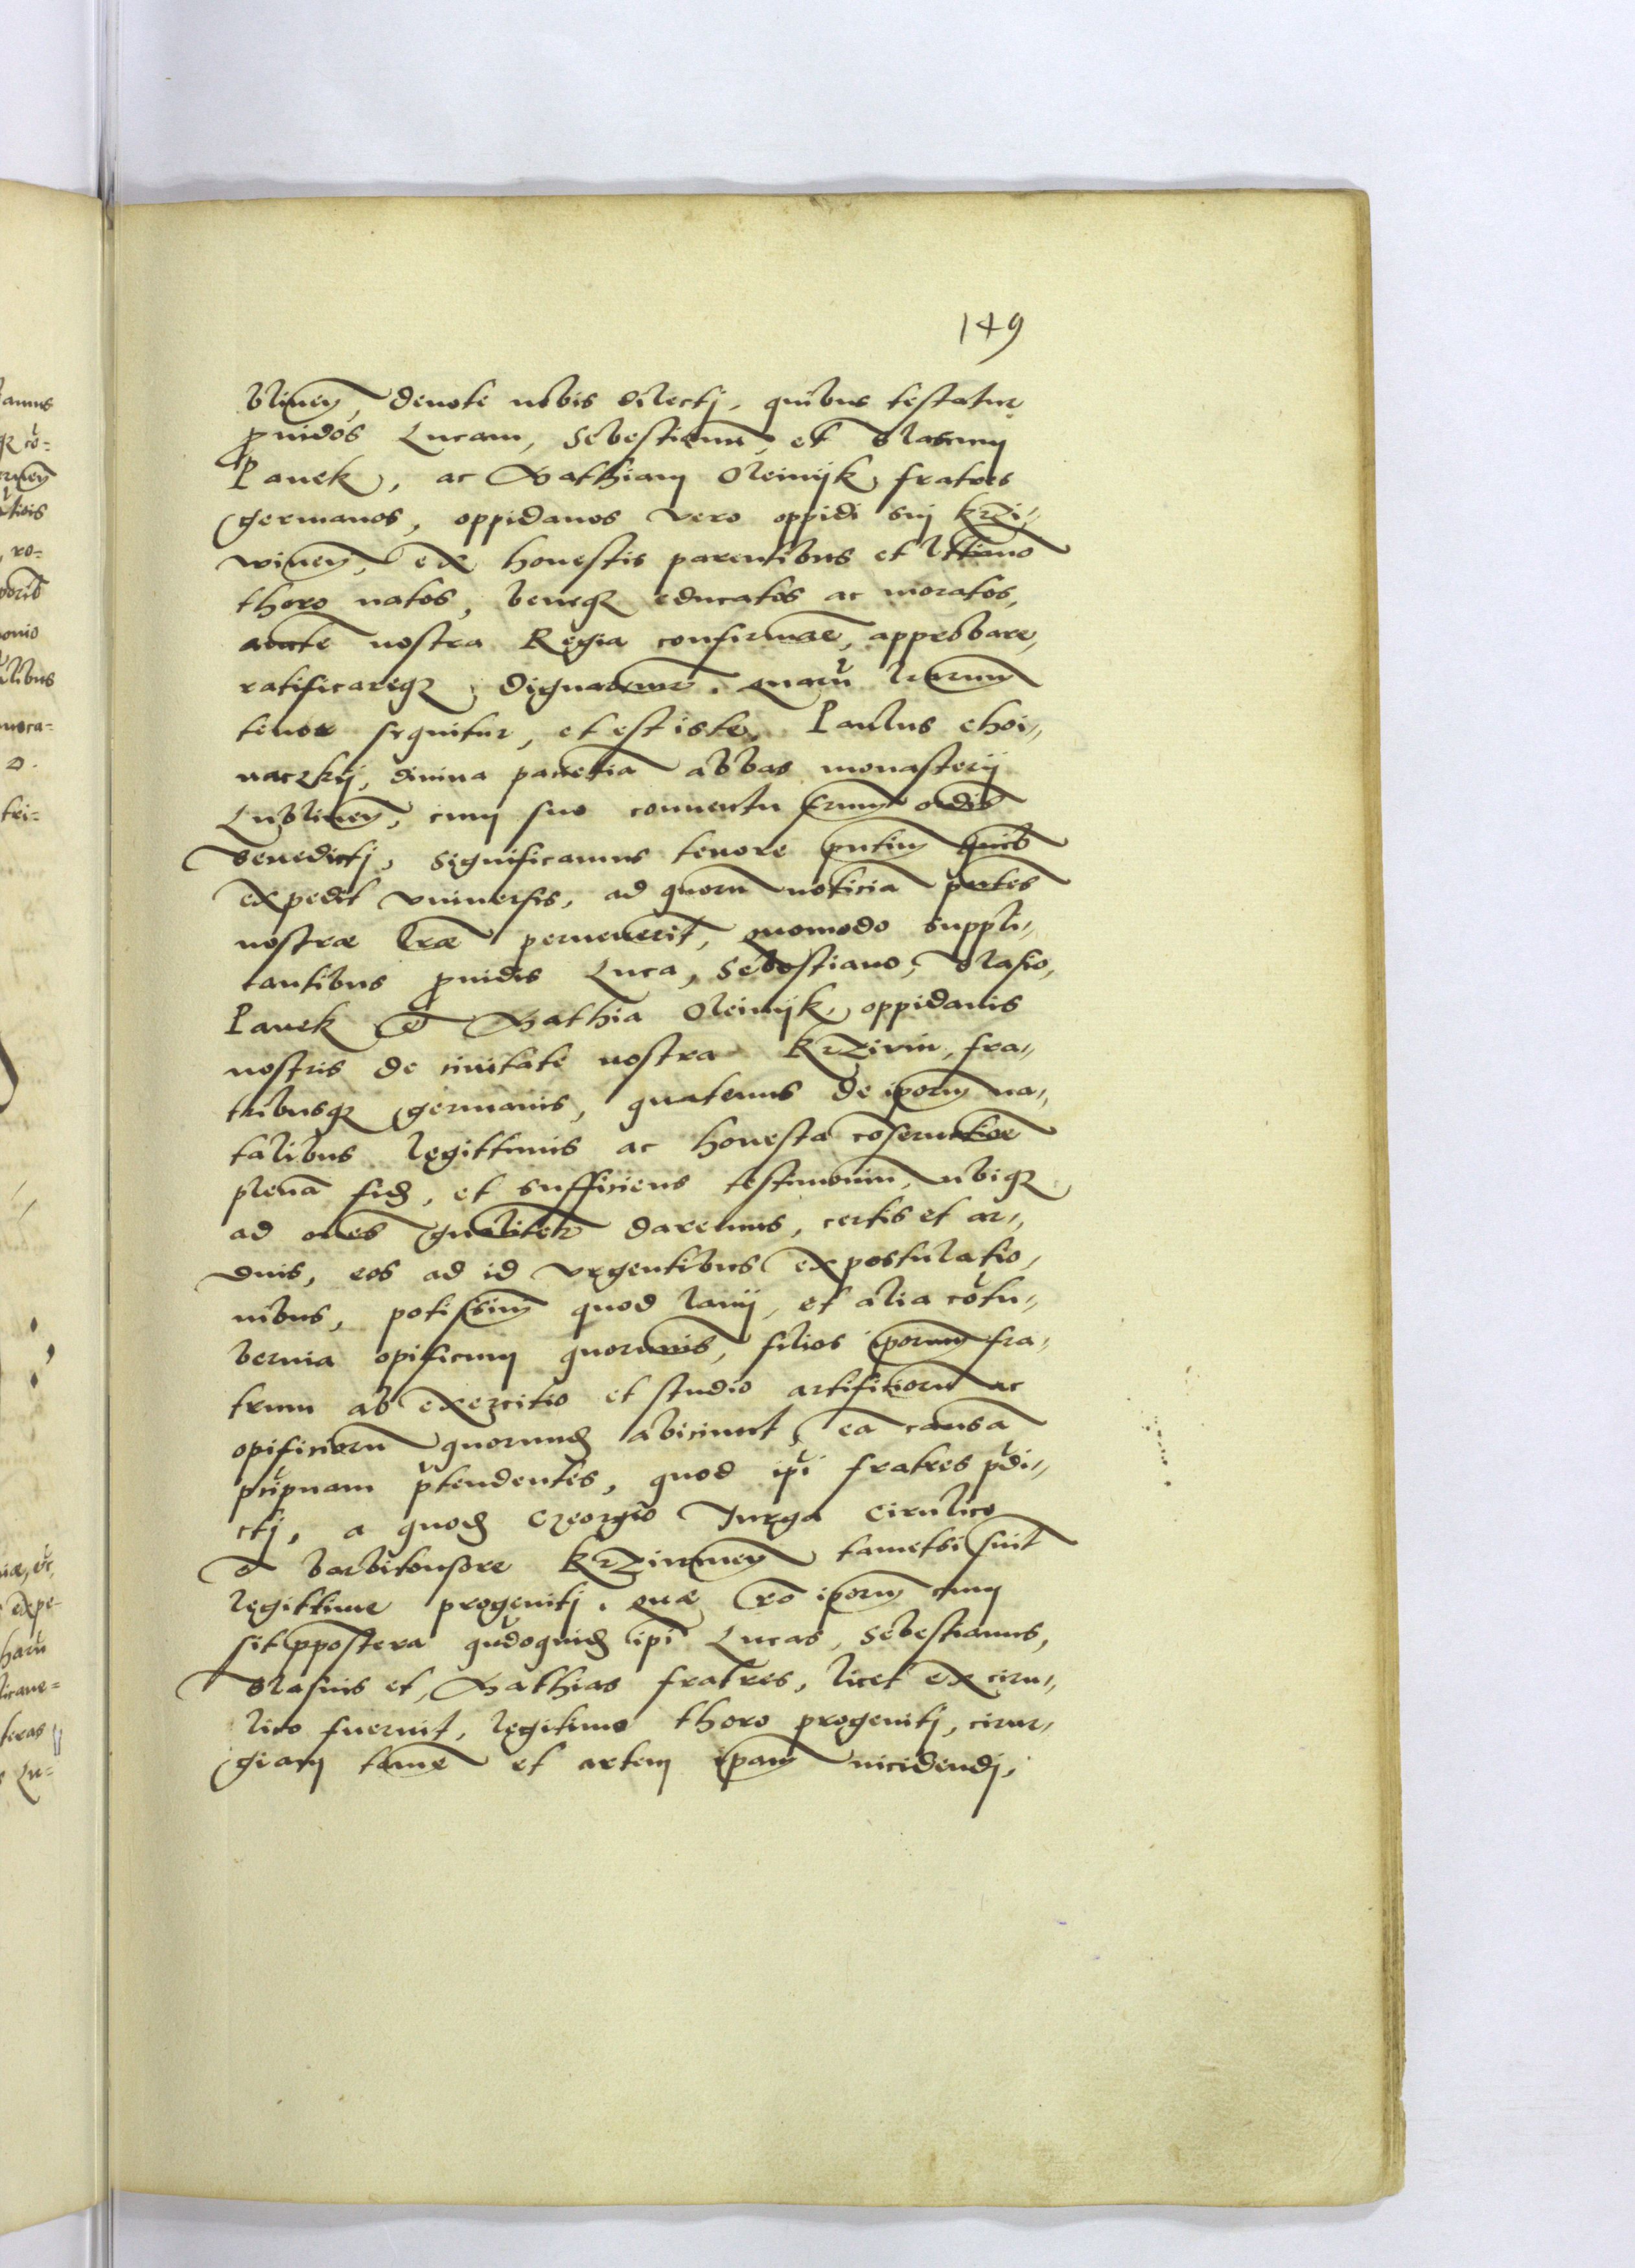 149
blineñ, deuote nobis dilectj, quibus testatur
prouidos Lucam, Sebestianum, et Blasium
Panek, ac Mathiam Oleinijk, fratres
germanos, oppidanos vero oppidi sui Krzi„
wineñ, ex honestis parentibus et lttimo
thoro natos, beneq3 educatos ac moratos,
aucte nostra Regia confirmare, approbare,
ratificareq3 dignaremur. quarũ lrarum
tenor sequitur, et est iste. Paulus choi„
naczkij, diuina pacientia abbas monasterij
Lublineñ, cum suo conuentu frum ordis
Benedictj, significamus tenore pntium quib
expedit vniuersis, ad quorũ noticiã pntes
nostræ lræ peruenerit, quomodo suppli„
cantibus prouidis Luca, Sebestiano, Blasio,
Panek et Mathia Oleinijk, oppidanis
nostris de ciuitate nostra Krziwin, fra„
tribusq3 germanis, quatenus de iporum na„
talibus legittimis ac honesta cõseruatioe
plenã fid, et sufficiens testimoniũ, ubiq3
ad oñes gnaliter daremus, certis et ar„
duis, eos ad id vrgentibus expostulatio„
nibus, potissim quod lanij, et alia cõtu„
bernia opificum quorumuis, filios iporum fra„
trum ab exercitio et studio artificiorũ ac
opificiorũ quorund abiciunt, eã causã
pcipuam ptendentes, quod ipi fratres pdi„
ctj, a quod Georgio Jurga Cirulico
et barbitonsore Krziwineñ tametsi sunt
legittime progenitj. quæ rõ iporum cum
sit ppostera qũdoquid ipi Lucas, Sebestianus,
Blasius et Mathias fratres, licet ex ciru„
lico fuerint, legitimo thoro progenitj, cirur„
giam tamẽ et artem ipam incidendj,